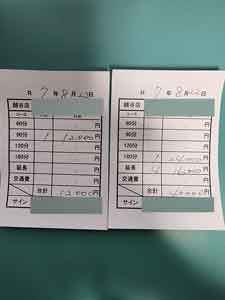 R 7 年 8 月 23 日
越谷店
コース
60分 円
90分 1 12,000 円
120分 円
180分 円
延長 円
交通費 円
合計 12,000 円
サイン
R 7 年 8 月 日
越谷店
コース
60分 円
90分 円
120分 円
180分 1 24,000 円
延長 4 16,000 円
交通費 円
合計 40,000 円
サイン